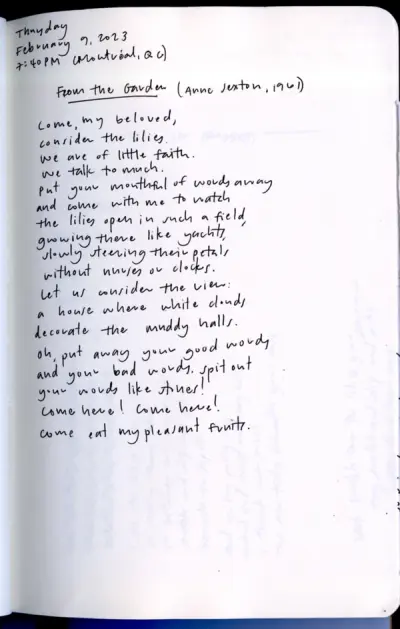 Thursday
February 9, 2023
7:40 PM (Montréal, QC)
From the Garden (Anne Sexton, 1961)
Come, my beloved,
consider the lilies.
We are of little faith.
We talk to much.
Put your mouthful of words away
and come with me to watch
the lilies open in such a field,
growing there like yachts,
slowly steering their petals
without nurses or clocks.
Let us consider the view:
a house where white clouds
decorate the muddy halls.
Oh, put away your good words
and your bad words. Spit out
your words like stones!
Come here! Come here!
Come eat my pleasant fruits.